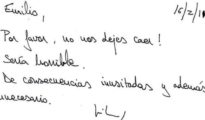 Emilio,
Por favor, no nos dejes caer!
Sería horrible.
De consecuencias inusitadas y además
innecesario.